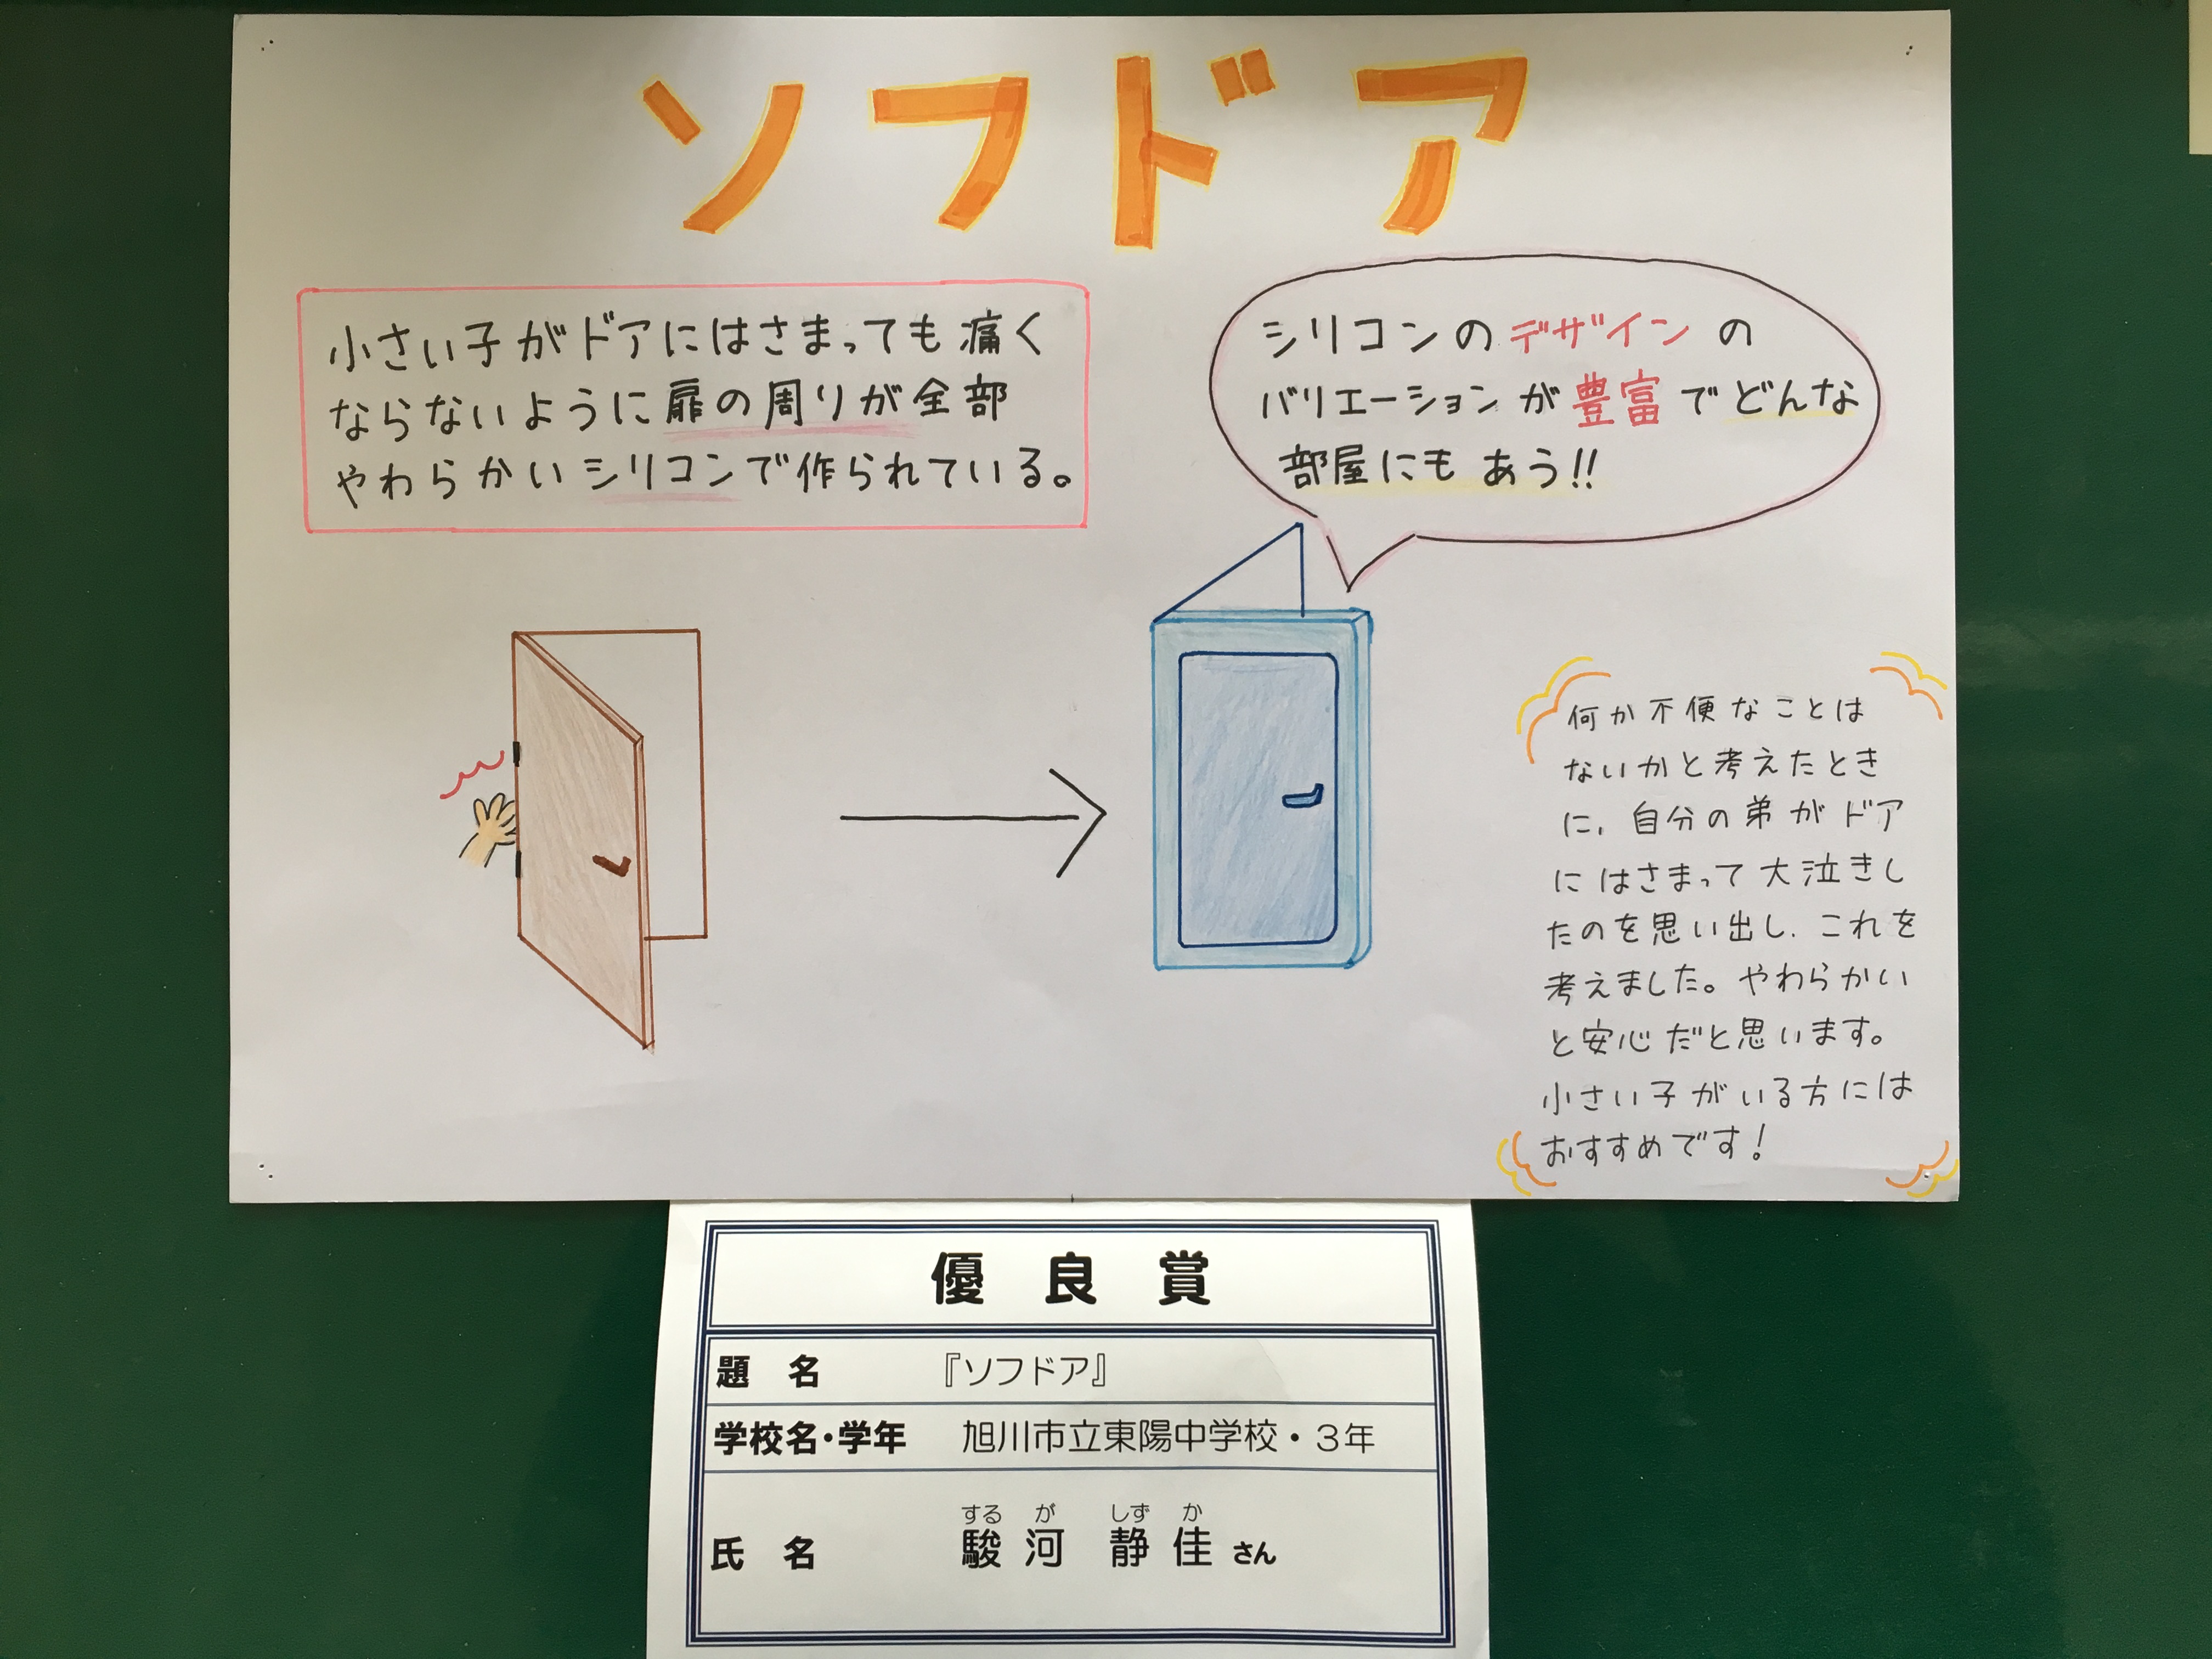 ソフドア
小さい子がドアにはさまっても痛く
ならないように扉の周りが全部
やわらかいシリコンで作られている。
シリコンのデザインの
バリエーションが豊富でどんな
部屋にもあう!!
何か不便なことは
ないかと考えたとき
に、自分の弟がドア
にはさまって大泣きし
たのを思い出し、これを
考えました。やわらかい
と安心だと思います。
小さい子がいる方には
おすすめです!
優良賞
題名 『ソフドア』
学校名・学年 旭川市立東陽中学校・3年
するが しずか
氏名 駿河 静佳 さん